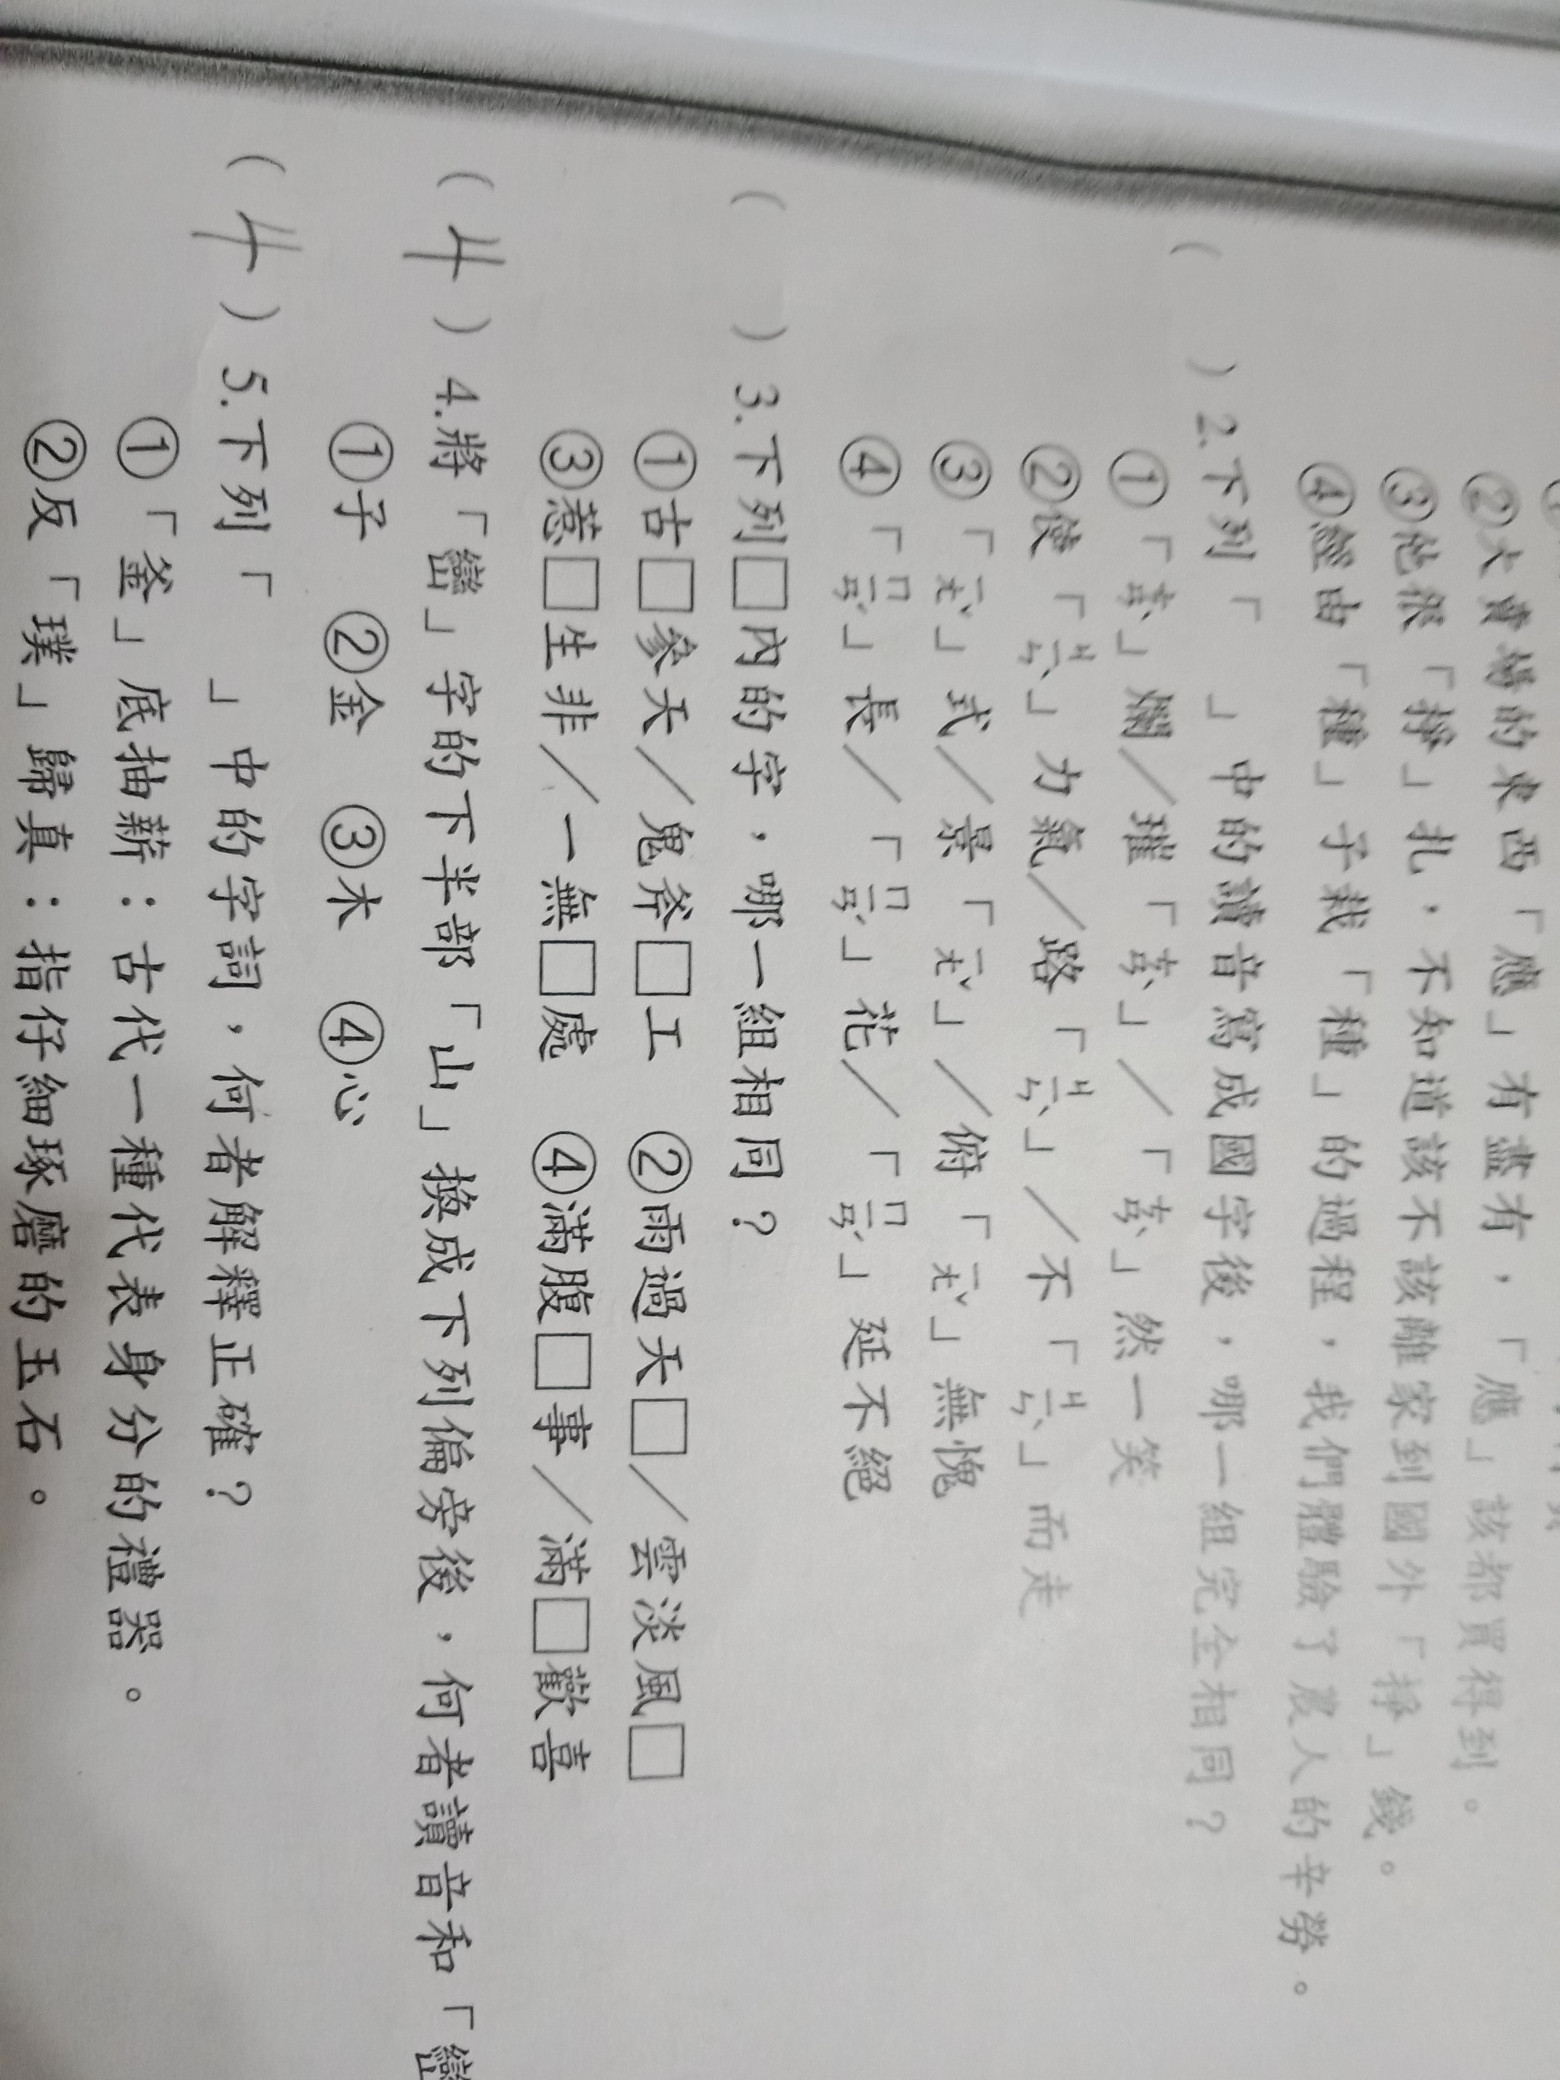 ②大賣場的東西「應」有盡有，「應」該都買得到。
③他很「掙」扎，不知道該不該離家到國外「掙」錢。
④經由「種」子栽「種」的過程，我們體驗了農人的辛勞。
( )2.下列「 」中的讀音寫成國字後，哪一組完全相同？
①「ㄘㄢˋ」爛／璀「ㄘㄢˋ」／「ㄘㄢˋ」然一笑
②使「ㄐㄧㄣˋ」力氣／路「ㄐㄧㄣˋ」／不「ㄐㄧㄣˋ」而走
③「ㄧㄤˇ」式／景「ㄧㄤˇ」／俯「ㄧㄤˇ」無愧
④「ㄇㄧㄢˊ」長／「ㄇㄧㄢˊ」花／「ㄇㄧㄢˊ」延不絕
( )3.下列□內的字，哪一組相同？
①古□參天／鬼斧□工 ②雨過天□／雲淡風□
③惹□生非／一無□處 ④滿腹□事／滿□歡喜
(4)4.將「巒」字的下半部「山」換成下列偏旁後，何者讀音和「巒
①子 ②金 ③木 ④心
(4)5.下列「 」中的字詞，何者解釋正確？
①「釜」底抽薪：古代一種代表身分的禮器。
②反「璞」歸真：指仔細琢磨的玉石。